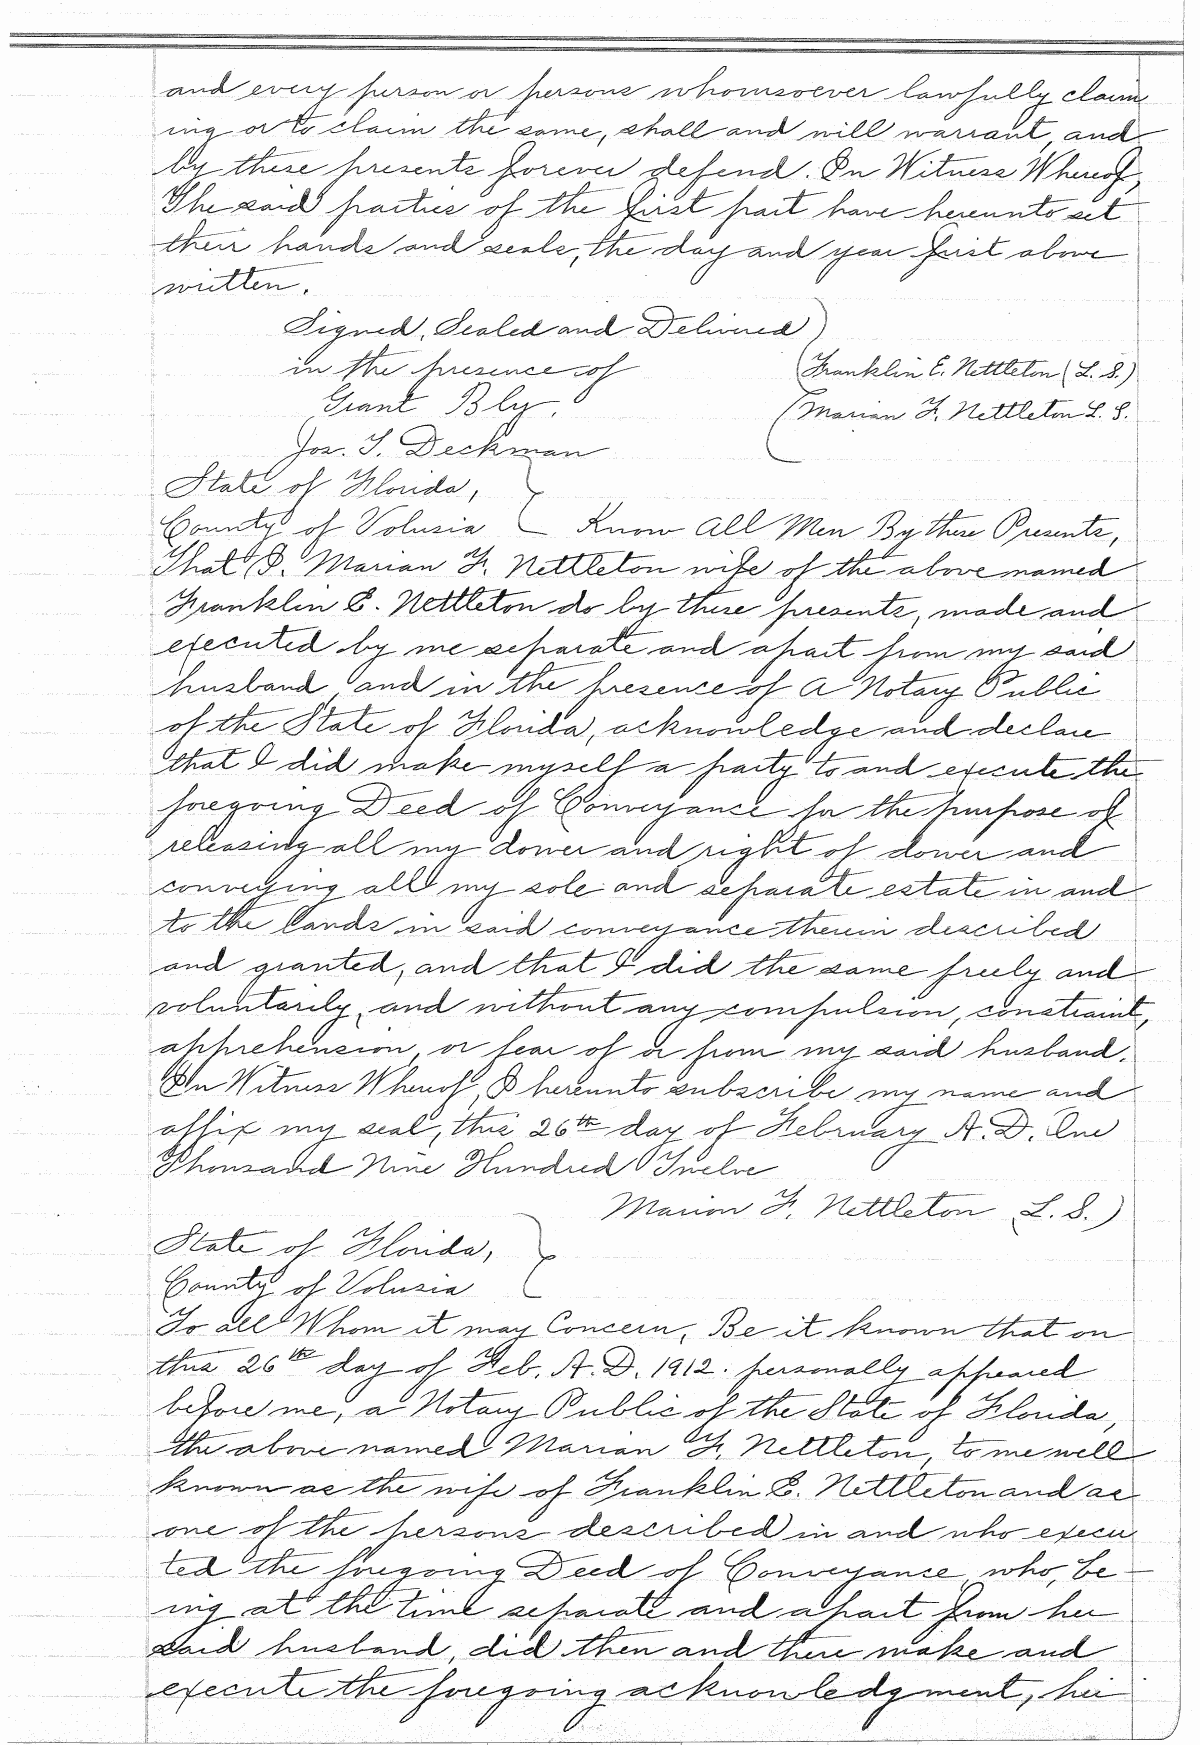 and every person or persons whomsoever lawfully claim
ing or to claim the same, shall and will warrant, and
by these presents forever defend. In Witness Whereof,
The said parties of the first part have hereunto set
their hands and seals, the day and year first above
written.
Signed, Sealed and Delivered
in the presence of
Franklin E. Nettleton (L. S.)
Grant Bly.
Marian F. Nettleton L. S.
Jos. T. Deckman
State of Florida,
County of Volusia Know All Men By these Presents,
That I, Marian F. Nettleton wife of the above named
Franklin E. Nettleton do by these presents, made and
executed by me separate and apart from my said
husband, and in the presence of a Notary Public
of the State of Florida, acknowledge and declare
that I did make myself a party to and execute the
foregoing Deed of Conveyance for the purpose of
releasing all my dower and right of dower and
conveying all my sole and separate estate in and
to the lands in said conveyance therein described
and granted, and that I did the same freely and
voluntarily, and without any compulsion, constraint,
apprehension, or fear of or from my said husband.
In Witness Whereof, I hereunto subscribe my name and
affix my seal, this 26th day of February A. D. One
Thousand Nine Hundred Twelve
Marion F. Nettleton (L. S.)
State of Florida,
County of Volusia
To all Whom it may Concern, Be it known that on
this 26th day of Feb. A. D. 1912. personally appeared
before me, a Notary Public of the State of Florida,
the above named Marian F. Nettleton, to me well
known as the wife of Franklin E. Nettleton and as
one of the persons described in and who execu
ted the foregoing Deed of Conveyance, who, be-
ing at the time separate and apart from her
said husband, did then and there make and
execute the foregoing acknowledgment, her